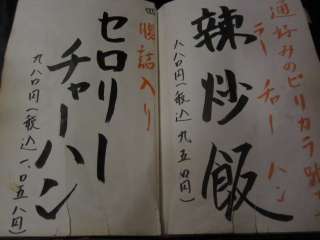 通好みのピリカラ
ラー チャー ハン
辣炒飯
八八〇円(税込 九五〇円)
腸詰入り
セロリー
チャーハン
九八〇円(税込 一、〇五八円)